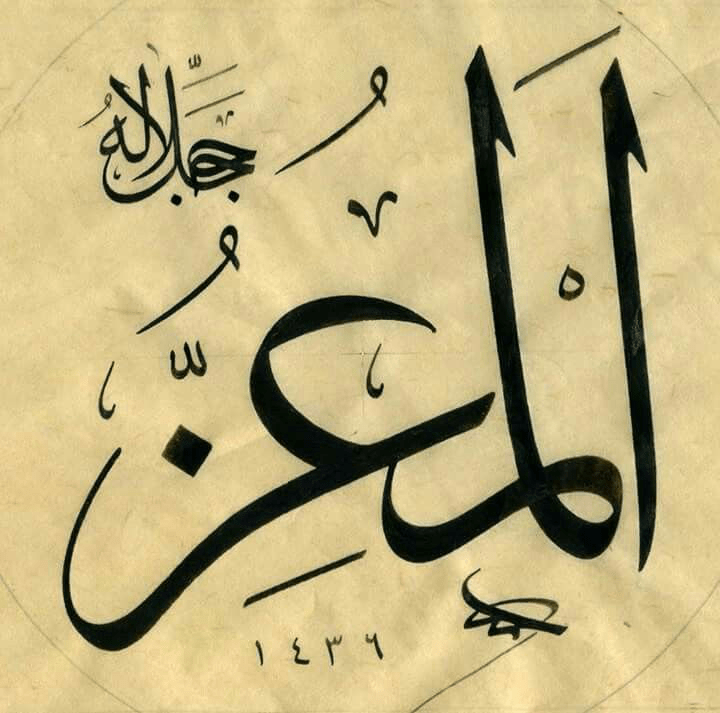 اَلْمُعِزُّ
جَلَّ جَلَالُهُ
١٤٣٦